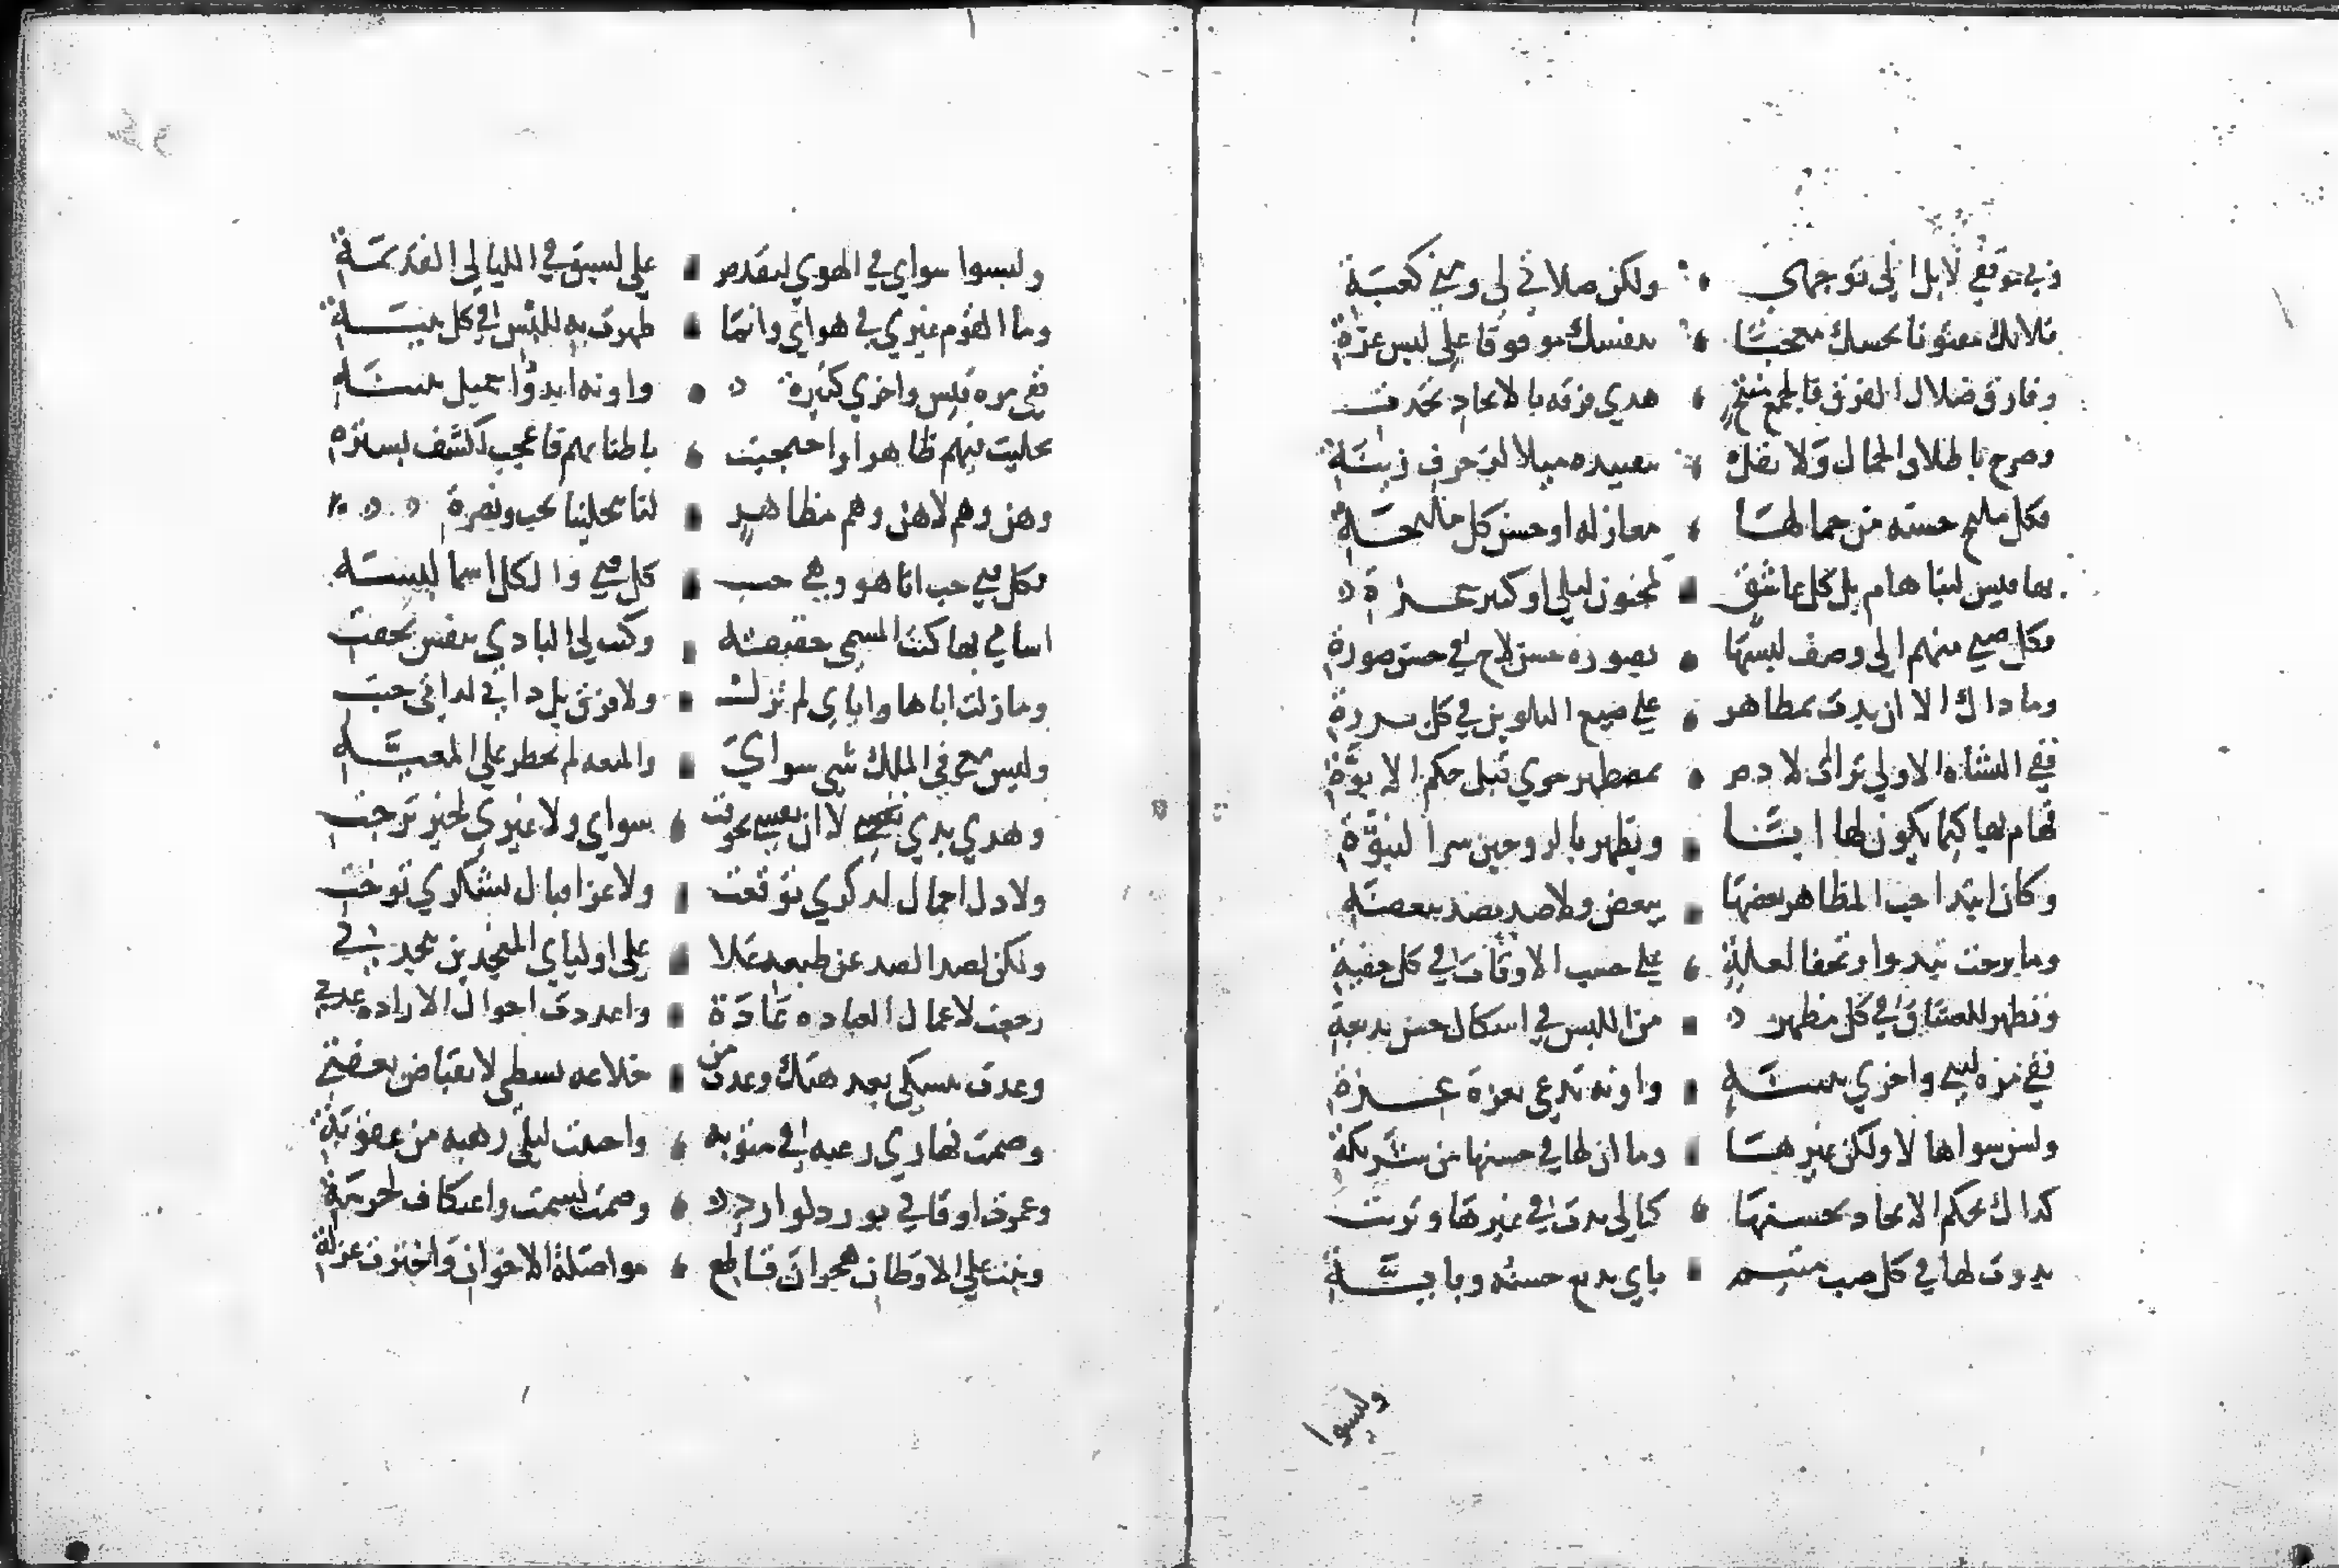 وفي موقفي لا بل الي توجهي ولكن صلاتي لي ومني كعبة
فلا تك مفتونا بحسنك معجبا بنفسك موقوفا علي لبس غرة
وفارق ضلال الفرق فالجمع منتج هدي فرقه بالاتحاد تحدت
وصرح باطلاق الجمال ولا تقل بتقييده ميلا لزخرف زينة
فكل مليح حسنه من جمالها معار له او حسن كل مليحة
بها قيس لبنا هام بل كل عاشق لمجنون ليلي او كثير عزة
فكل صبي منهم الي وصف لبسها بصوره حسن لاح في حسن صورة
وما ذاك الا ان بدت بمظاهر علي صبغ التلوين في كل برزة
ففي النشاة الاولي تراات لادم بمظهر حوي قبل حكم الابوة
فهام بها كيما يكون لها ابا ويظهر بالزوجين سر النبوة
وكان ابتدا حب المظاهر بعضها ببعض ولا ضد يصد ببعضة
وما برحت تبدوا وتخفا لعلة علي حسب الاوقات في كل حقبة
وتظهر للعشاق في كل مظهر من اللبس في اشكال حسن بديعة
ففي مره لبني واخري بثينة واونه تدعي بعزة عزة
ولسن سواها لا ولكن غيرها وما ان لها في حسنها من شريكة
كذاك بحكم الاتحاد بحسنها كما لي بدت في غيرها وتزيت
بدوت لها في كل صب متيم باي بديع حسنه وباية
وليسوا
وليسوا سواي في الهوي لتقدم علي لسبق في الليالي القديمة
وما القوم غيري في هواي وانما ظهرت بهم للبس في كل هيئة
ففي مره قيس واخري كثيرة واونه ابدوا جميل بثينة
تجليت فيهم ظاهرا واحتجبت باطنا بهم فاعجب لكشف بسترة
وهن وهم لا هن وهم مظاهر لنا بتجلينا بحب ونضرة
فكل فتي حب انا هو وهي حب كل فتي والكل اسما لبسة
اسامي بها كنت المسمي حقيقة وكنت لي البادي بنفس تخفت
وما زلت اياها واياي لم تزل ولا فرق بل ذاتي لذاتي حبت
وليس معي في الملك شي سواي والمعيه لم تخطر علي المعية
وهذي يدي لا ان نفسي تخوفت سواي ولا غيري لخير ترجت
ولا ذل اجمال لذكري توقعت ولا عز اقبال لشكري توخت
ولكن لصد الضد عن طعنه علا علي اوليا المنجدين بنجدتي
رجعت لاعمال العباده عادة واعددت احوال الاراده عدتي
وعدت بنسكي بعد هتكي وعدت من خلاعه بسطي لانقباض بعفتي
وصمت نهاري رغبه في مثوبه واحييت ليلي رهبه من عقوبة
وعمرت اوقاتي بورد لوارد وصمت لسمت واعتكاف لحرمة
وبنت علي الاوطان هجران قاطع مواصلة الاخوان واخترت عزلة